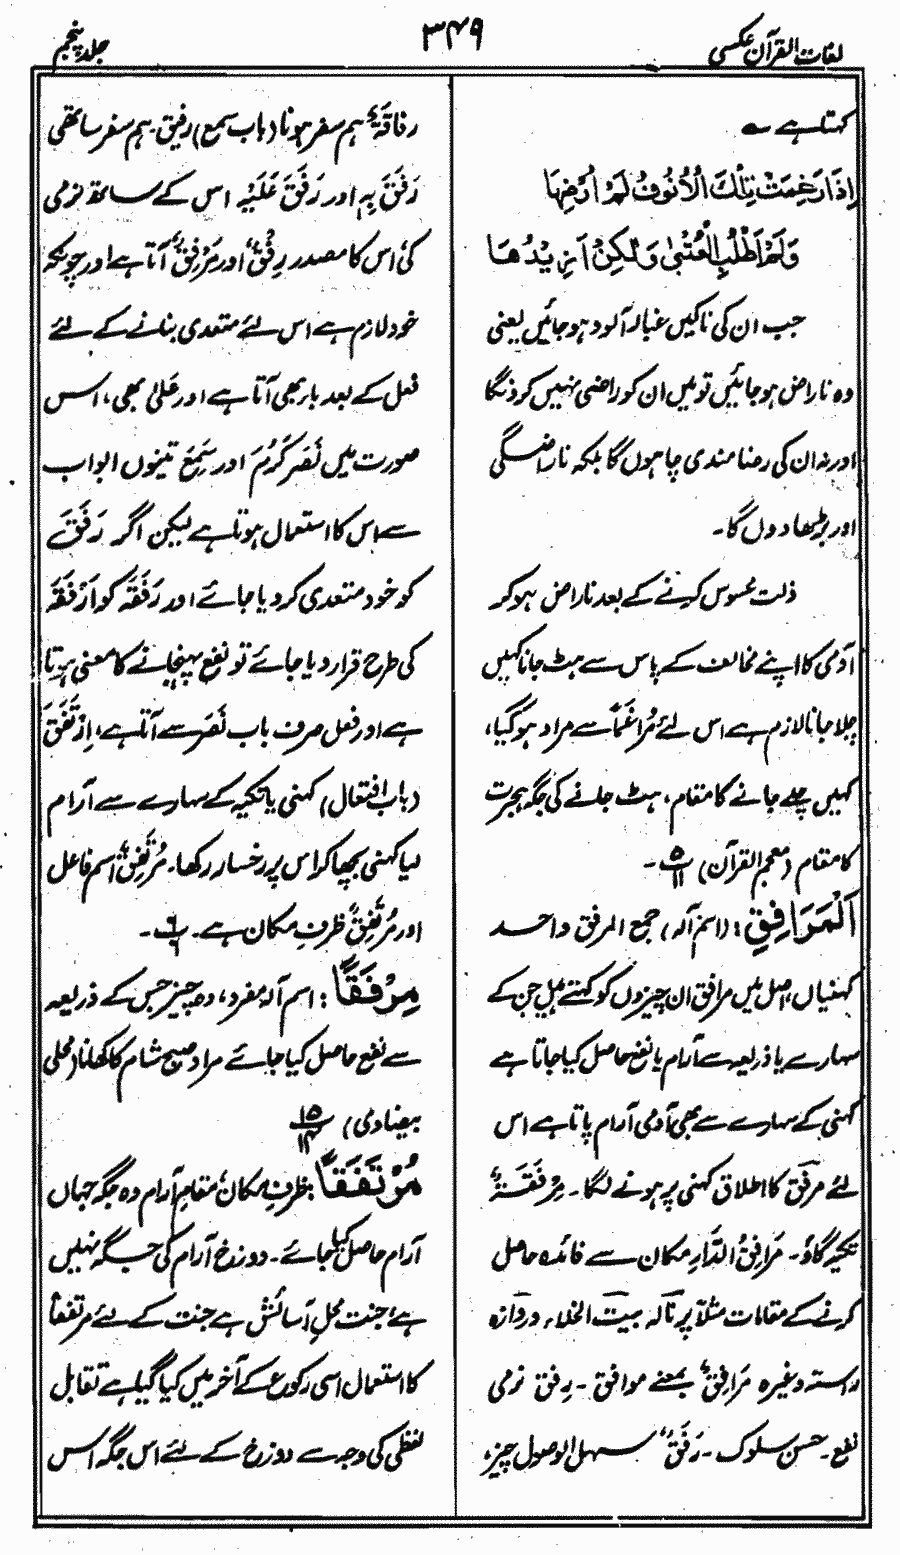 لغات القرآن عکسی
۳۴۹
جلد پنجم
کہتا ہے ؎
اِذَا رَغِمَتْ تِلْكَ الْاُنُوفُ لَمْ اُرْضِهَا
وَلَمْ اَطْلُبِ الْعُتْبٰی وَلٰكِنْ اَزِیْدُهَا
جب ان کی ناکیں غبار آلود ہو جائیں یعنی
وہ ناراض ہو جائیں تو میں ان کو راضی نہیں کروں گا
اور نہ ان کی رضا مندی چاہوں گا بلکہ ناراضگی
اور بڑھا دوں گا۔
ذلت محسوس کرنے کے بعد ناراض ہو کر
آدمی کا اپنے مخالف کے پاس سے ہٹ جانا کہیں
چلا جانا لازم ہے اس لئے مُراغَماً سے مراد ہو گیا،
کہیں چلے جانے کا مقام، ہٹ جانے کی جگہ ہجرت
کا مقام (معجم القرآن) پ ۵ ۱۱۔
اَلْمَرَافِقِ: (اسم آلہ) جمع المرفق واحد
کہنیاں، اصل میں مرافق ان چیزوں کو کہتے ہیں جن کے
سہارے یا ذریعہ سے آرام یا نفع حاصل کیا جاتا ہے
کہنی کے سہارے سے بھی آدمی آرام پاتا ہے اس
لئے مرفق کا اطلاق کہنی پر ہونے لگا۔ مِرْفَقَۃٌ
تکیہ گاؤ۔ مَرَافِقُ الدَّارِ مکان سے فائدہ حاصل
کرنے کے مقامات مثلاً پرنالہ بیت الخلاء دروازہ
راستہ وغیرہ مَرَافِقٌ بمعنے موافق۔ رِفق نرمی
نفع۔ حسن سلوک۔ رَفَقٌ سہل الوصول چیز،
رفاقۃٌ ہم سفر ہونا (باب سمع) رفیق۔ ہم سفر ساتھی
رَفَقَ بِہٖ اور رَفَقَ عَلَیْہِ اس کے ساتھ نرمی
کی اس کا مصدر رِفْقٌ اور مَرْفِقٌ آتا ہے اور چونکہ
خود لازم ہے اس لئے متعدی بنانے کے لئے
فعل کے بعد بار بھی آتا ہے اور عَلیٰ بھی، اس
صورت میں نَصَرَ کَرُمَ اور سَمِعَ تینوں ابواب
سے اس کا استعمال ہوتا ہے لیکن اگر رَفَقَ
کو خود متعدی کر دیا جائے اور رَفَقَہٗ کو اَرْفَقَہٗ
کی طرح قرار دیا جائے تو نفع پہنچانے کا معنی ہوتا
ہے اور فعل صرف باب نَصَرَ سے آتا ہے، اِرْتَفَقَ
(باب افتعال) کہنی یا تکیہ کے سہارے سے آرام
لیا کہنی بچھا کر اس پر رخسار رکھا۔ مُرْتَفِقٌ اسم فاعل
اور مُرْتَفِقٌ ظرفِ مکان ہے۔ پ ۶ ۶۔
مِرْفَقًا: اسم آلہ مفرد، وہ چیز جس کے ذریعہ
سے نفع حاصل کیا جائے مراد صبح شام کا کھانا (محلی
بیضاوی) ۱۵ ۱۴
مُرْتَفَقًا: ظرفِ مکان، مقامِ آرام وہ جگہ جہاں
آرام حاصل کیا جائے۔ دوزخ آرام کی جگہ نہیں
ہے، جنت محلِ آسائش ہے جنت کے لئے مرتفقاً
کا استعمال اسی رکوع کے آخر میں کیا گیا ہے تقابل
لفظی کی وجہ سے دوزخ کے لئے اس جگہ اس